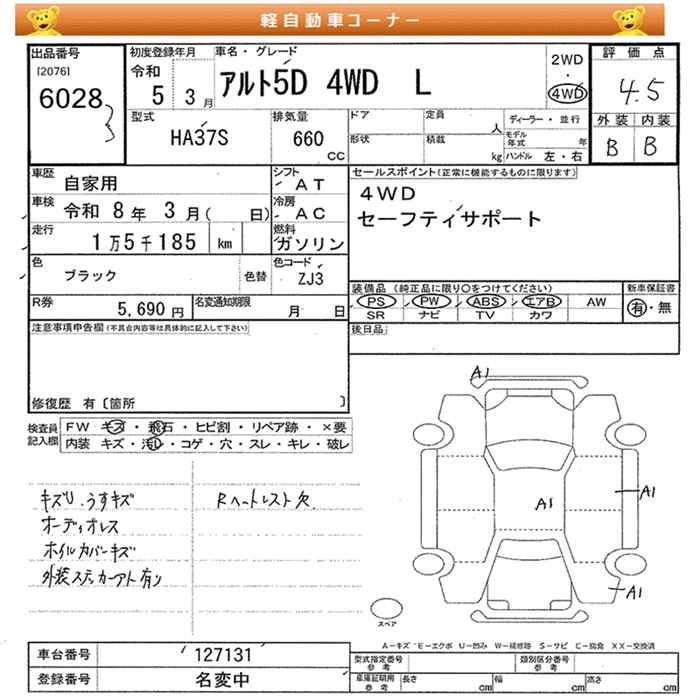 軽自動車コーナー
出品番号
[2076]
6028
初度登録年月
令和
5 3月
車名・グレード
アルト5D 4WD L
2WD
・
4WD
評価点
4.5
外装 内装
B B
型式
HA37S
排気量
660
CC
ドア
形状
定員
人
積載
kg
ディーラー・並行
モデル年式
年
ハンドル 左・右
車歴
自家用
シフト
AT
車検
令和 8年 3月( 日)
冷房
AC
走行
1万5千185 km
燃料
ガソリン
色
ブラック
色替
色コード
ZJ3
R券
5,690 円
名変通知期限
月 日
セールスポイント(正常に機能するものに限ります)
4WD
セーフティサポート
装備品 (純正品に限り○をつけてください)
新車保証書
PS PW ABS エアB AW
有・無
SR ナビ TV カワ
後日品
注意事項申告欄(不具合内容等は具体的に記入して下さい)
修復歴 有〔箇所 〕
検査員
記入欄
FW キズ・飛石・ヒビ割・リペア跡・×要
内装 キズ・汚レ・コゲ・穴・スレ・キレ・破レ
キズU.うすキズ
オーディオレス
ホイルカバーキズ
外装ステッカーアト有り
Rヘットレスト欠
A1
A1
A1
A1
スペア
A-キズ E-エクボ U-凹み W-補修跡 S-サビ C-腐食 XX-交換済
車台番号
127131
登録番号
名変中
型式指定番号
参考
類別区分番号
参考
車庫証明用
参考
長さ
cm
幅
cm
高さ
cm